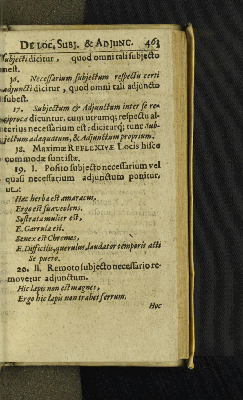 DE LOC, SUBJ. & ADJUNC. 463
subjecti dicitur, quod omni tali subjecto
inest.
16. Necessarium subjectum respectu certi
adjuncti dicitur, quod omni tali adjuncto
subest.
17. Subjectum & Adjunctum inter se re-
ciproca dicuntur, cum utrumq; respectu al-
terius necessarium est: dicitúrq; tunc Sub-
jectum adæquatum, & Adjunctum proprium.
18. Maximæ REFLEXIVÆ Locis hisce
commodæ sunt istæ.
19. I. Posito subjecto necessarium vel
quasi necessarium adjunctum ponitur,
ut:
Hæc herba est amaracus,
Ergo est suaveolens.
Substrata mulier est,
E. Garrula est.
Senex est Chremes,
E. Difficilis, querulus, laudator temporis acti
Se puero.
20. II. Remoto subjecto necessario re-
movetur adjunctum.
Hic lapis non est magnes,
Ergo hic lapis non trahet ferrum.
Hoc